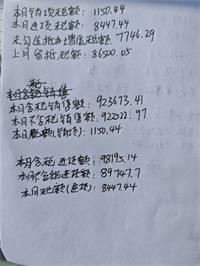 本月销项税额: 1150.44
本月进项税额: 8447.44
未勾选抵扣增值税额: 7746.29
上月留抵税额: 86500.05
本月含税销售额: 923673.41
本月不含税销售额: 922522.97
本月税额(销项): 1150.44
本月含税进货额: 98195.14
本月不含税进货额: 89747.7
本月税额(进项): 8447.44